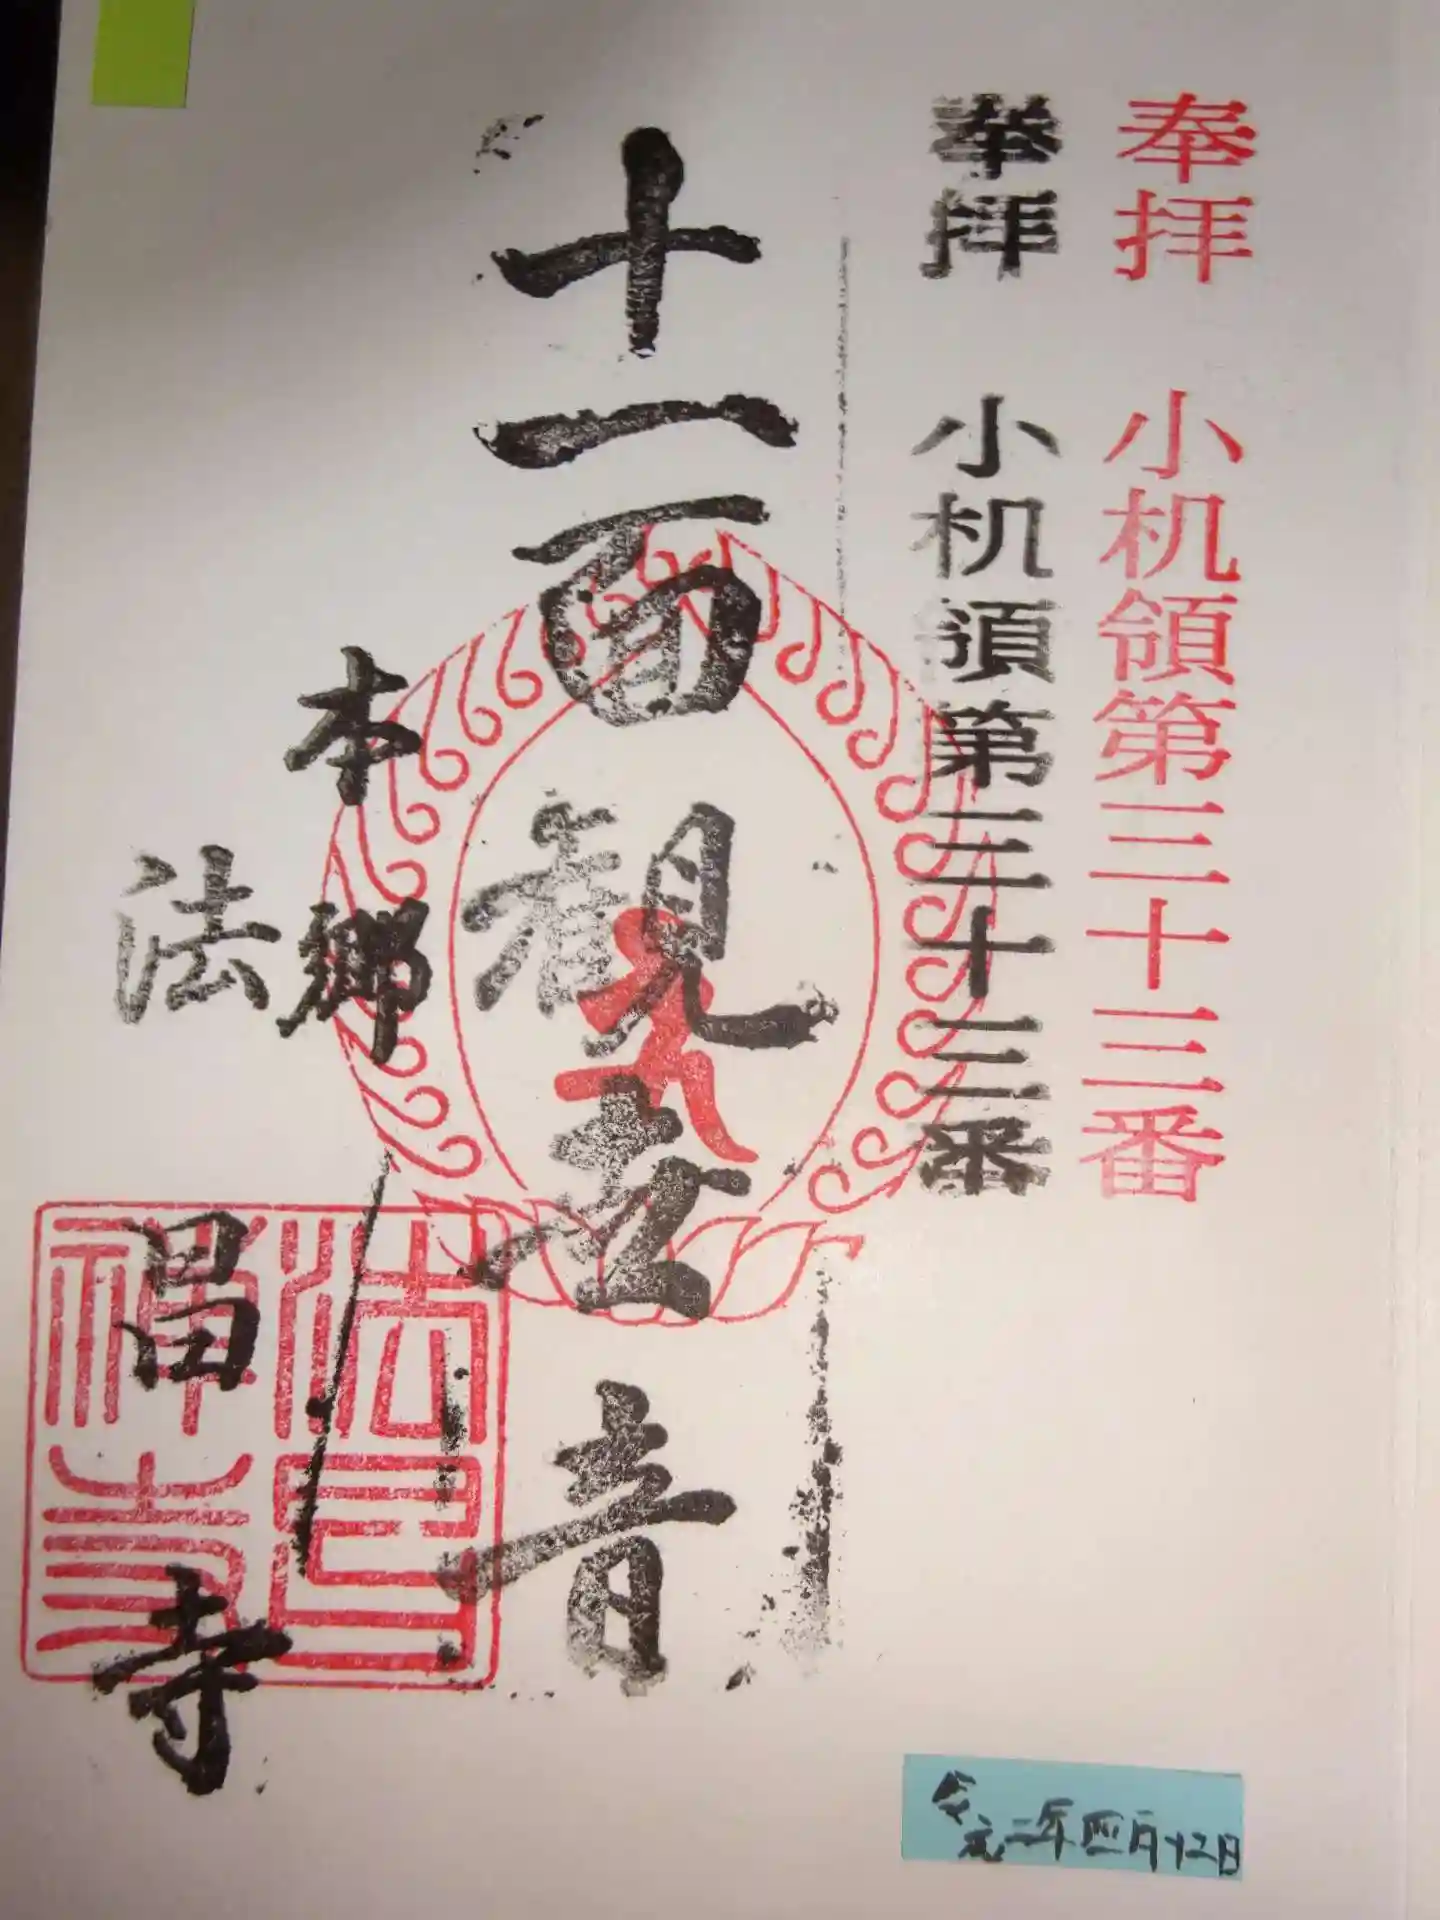 奉拝 小机領第三十三番
奉拝 小机領第三十三番
十一面観世音
本郷
法昌寺
法昌
禅寺
二年四月十二日